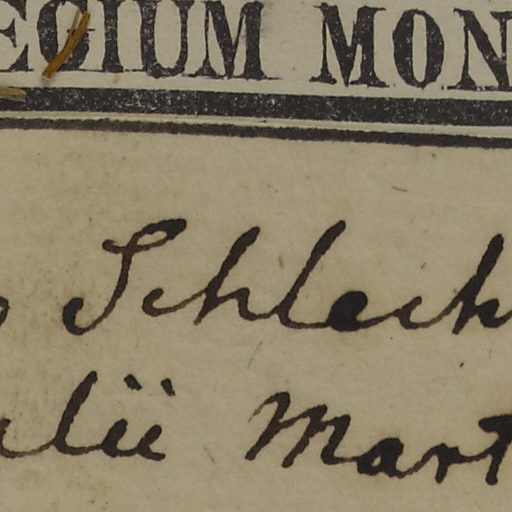 EGIUM MON
Schlech
alii Mart